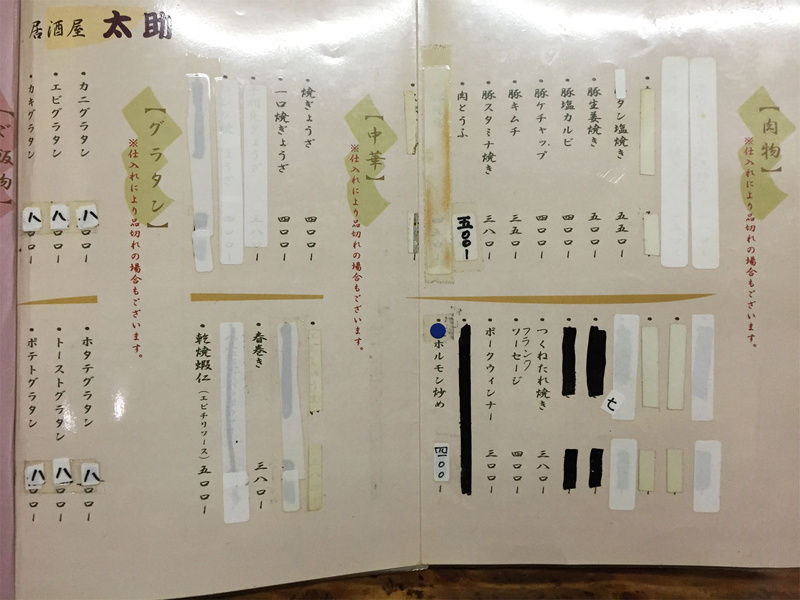 居酒屋 太助
【肉物】
※仕入れにより品切れの場合もございます。
タン塩焼き 五五〇ー
・豚生姜焼き 五〇〇ー
・豚塩カルビ 四〇〇ー
・豚ケチャップ 四〇〇ー
・豚キムチ 三五〇ー
・豚スタミナ焼き 三八〇ー
・肉とうふ 五〇〇ー
七
・つくねたれ焼き 三八〇ー
・フランクソーセージ 四〇〇ー
・ポークウィンナー 三〇〇ー
ホルモン炒め 四〇〇ー
【中華】
※仕入れにより品切れの場合もございます。
・焼ぎょうざ 四〇〇ー
・一口焼ぎょうざ 四〇〇ー
・春巻き 三八〇ー
・乾焼蝦仁(エビチリソース) 五〇〇ー
【グラタン】
※仕入れにより品切れの場合もございます。
・カニグラタン 八〇〇ー
・エビグラタン 八〇〇ー
・カキグラタン 八〇〇ー
・ホタテグラタン 八〇〇ー
・トーストグラタン 八〇〇ー
・ポテトグラタン 八〇〇ー